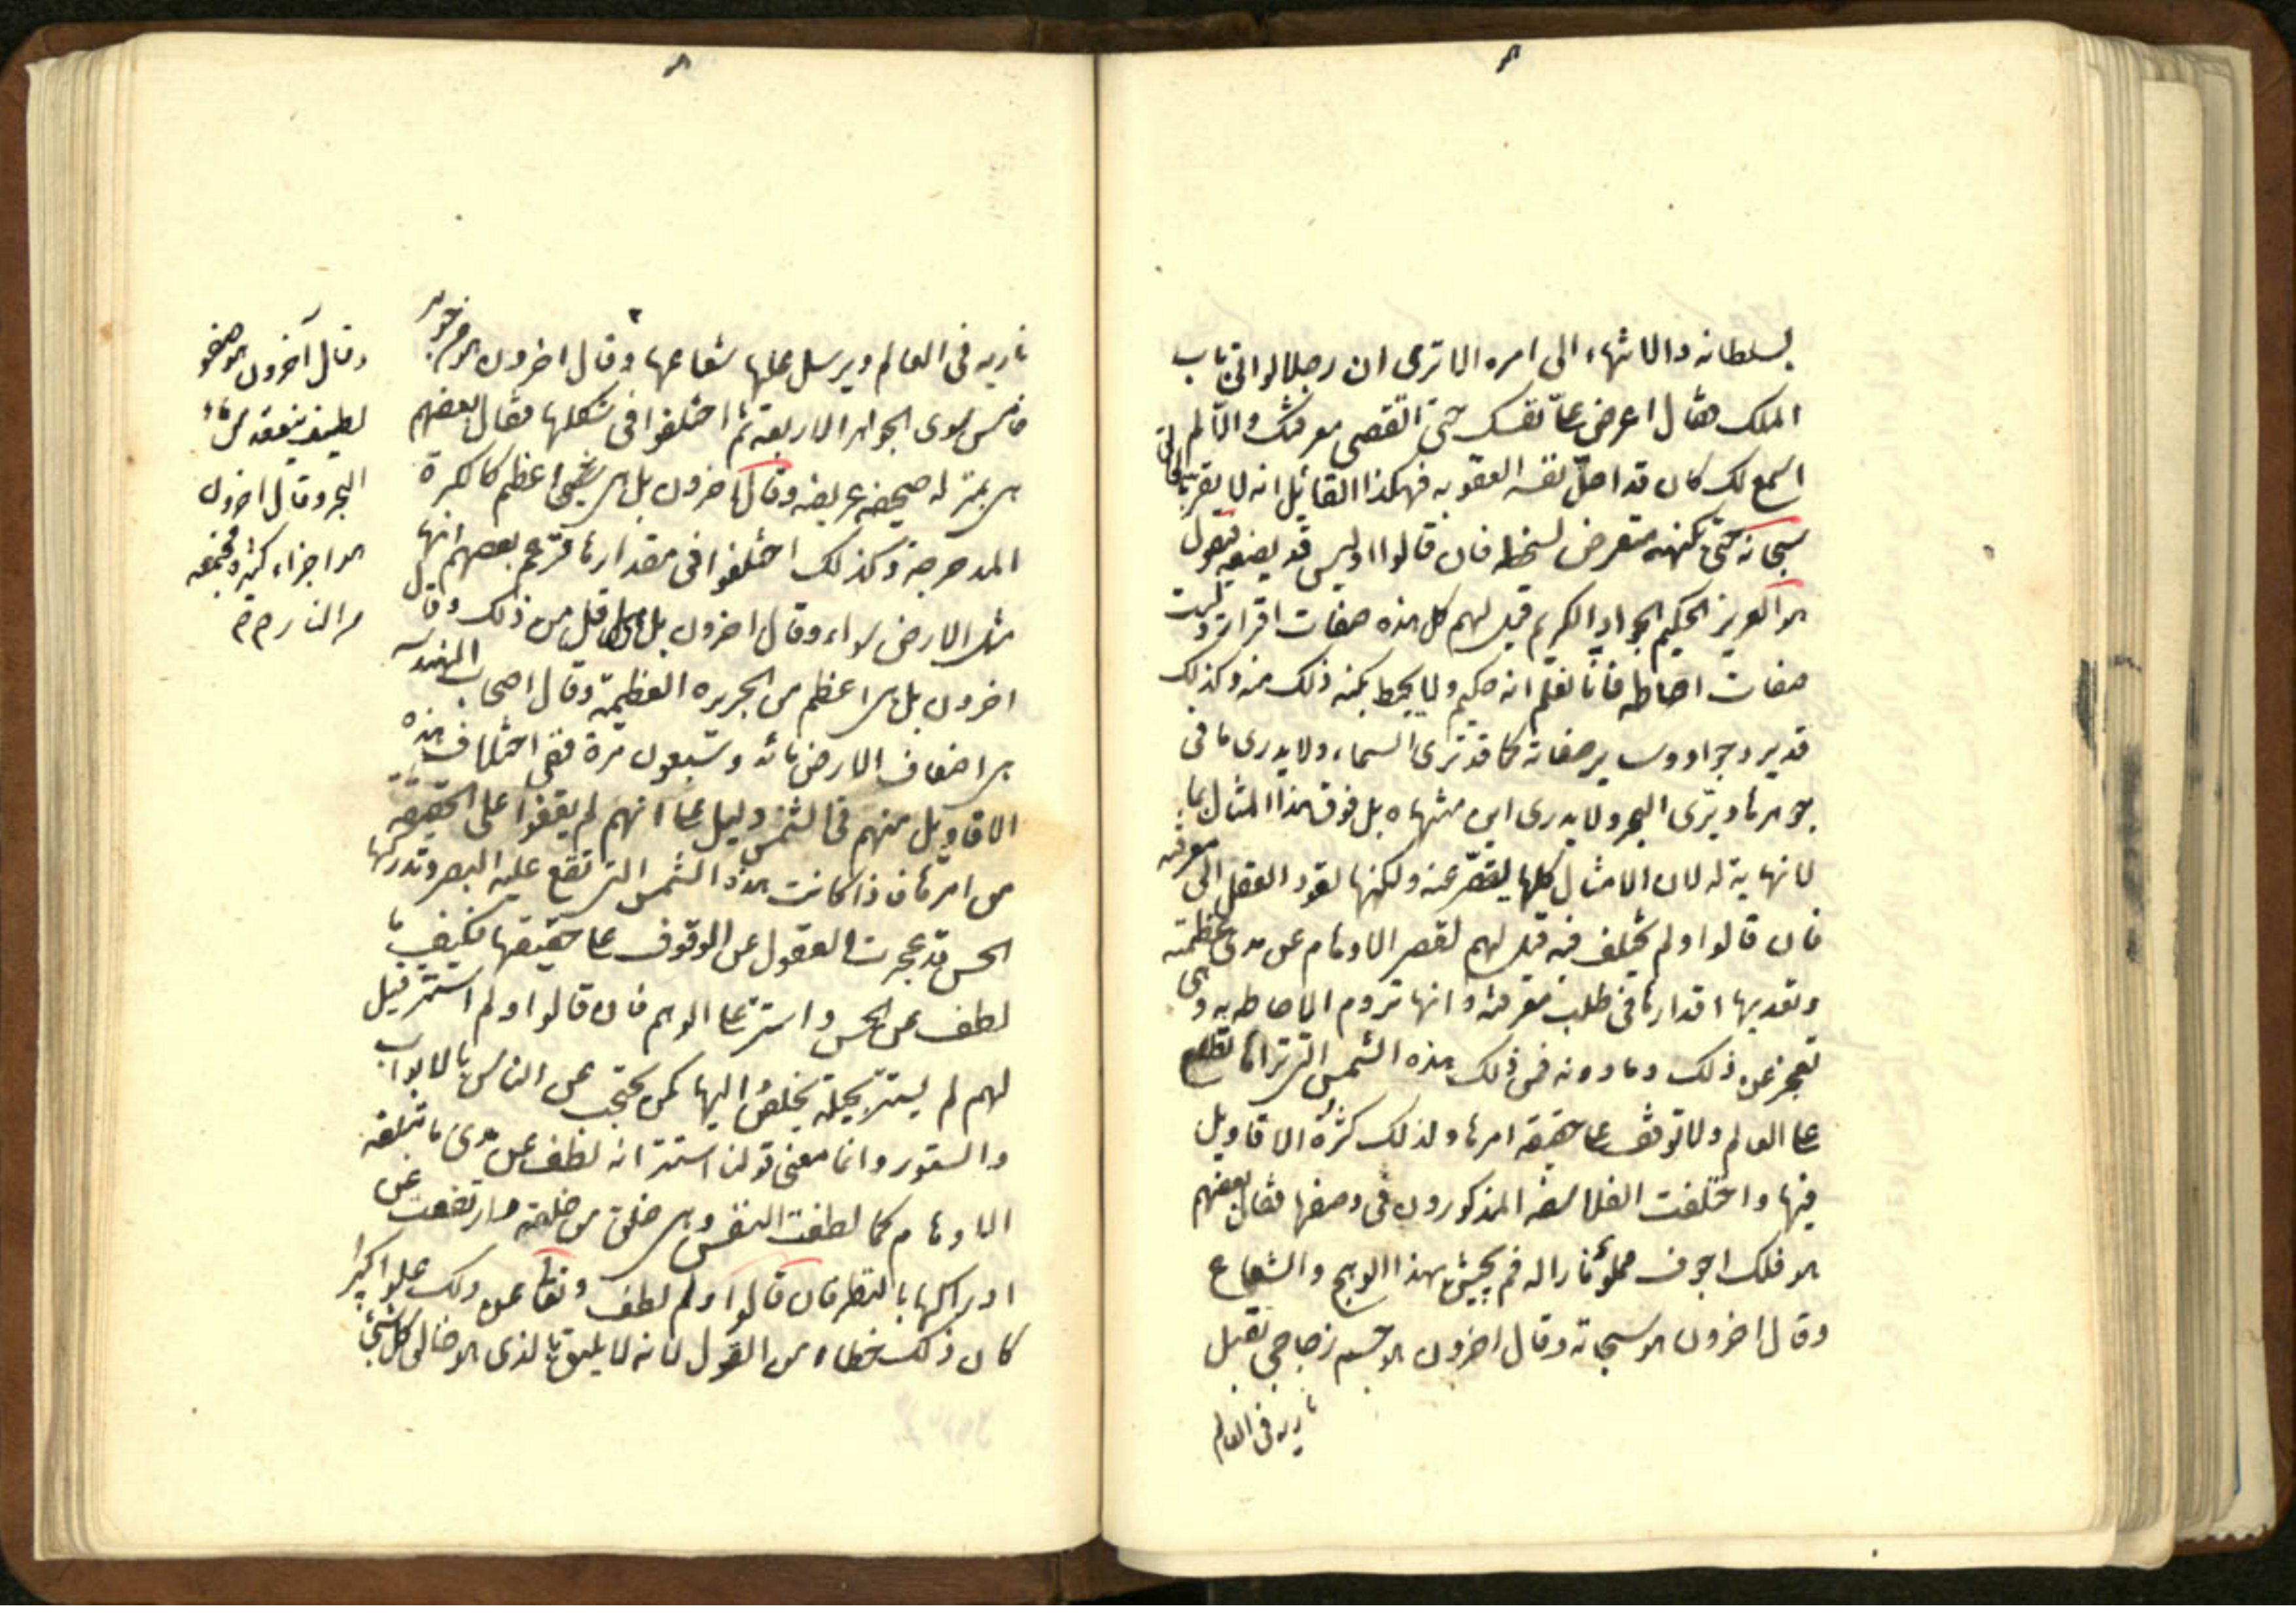 بسلطانه والانتهاء الى امره الا ترى ان رجلا لو اتى باب
الملك فقال اعرض علىّ نفسك حتى اتقصى معرفتك والّا لم
اسمع لك كان قد احلّ نفسه العقوبه فهكذا القائل انه لا يقر بالخالق
سبحانه حتى يكنهه متعرض لسخطه فان قالوا اوليس قد يصفه فنقول
هو العزيز الحكيم الجواد الكريم قيل لهم كل هذه صفات اقرار وليست
صفات احاطه فانا نعلم انه حكيم ولا يحيط بكنه ذلك منه وكذلك
قدير وجواد وساير صفاته كما قد نرى السماء ولا يدرى ما فى
جوهرها ويرى البحر ولا يدرى اين منتهاه بل فوق هذا المثال بما
لا نهاية له لان الامثال كلها يقصّر عنه ولكنها تقود العقل الى معرفته
فان قالوا ولم يختلف فيه قيل لهم لقصر الاوهام عن مدى عظمته
وتعديها اقدارها فى طلب معرفته وانها تروم الاحاطه به وهى
تعجز عن ذلك وما دونه فمن ذلك هذه الشمس التى تراها تطلع
على العالم ولا توقف على حقيقه امرها ولذلك كثرة الاقاويل
فيها واختلفت الفلاسفه المذكورون فى وصفها فقال بعضهم
هو فلك اجوف مملوّ نارا له فم يجيش بهذا الوهج والشعاع
وقال اخرون هو سحابة وقال اخرون هو جسم زجاجى يقبل
ناريه فى العالم
ناريه فى العالم ويرسل عليها شعاعها وقال اخرون هو من جوهر
خامس سوى الجواهر الاربعة ثم اختلفوا فى شكلها فقال بعضهم
هى بمنزله صحيفه عريضه وقال اخرون بل هى شىء اعظم كالكرة
المدحرجة وكذلك اختلفوا فى مقدارها فزعم بعضهم انها
مثل الارض سواء وقال اخرون بل هى اقل من ذلك وقال
اخرون بل هى اعظم من الجزيره العظيمة وقال اصحاب الهندسة
هى اضعاف الارض مائه وسبعون مرة ففى اختلاف هذه
الاقاويل منهم فى الشمس دليل على انهم لم يقفوا على الحقيقه
من امرها فاذا كانت هذه الشمس التى تقع عليه البصر وتدركها
الحس قد عجزت العقول عن الوقوف على حقيقتها فكيف ما
لطف عن الحس واستتر على الوهم فان قالوا ولم استتر قيل
لهم لم يستتر بحيلة يخلص اليها كمن يحتجب عن الناس بالابواب
والستور وانما معنى قولنا استتر انه لطف عن مدى ما تبلغه
الاوهام كما لطفت النفس وهى خلق من خلقه وارتفعت عن
ادراكها بالنظر فان قالوا ولم لطف وتعالى عن ذلك علوا كبيرا
كان ذلك خطاء من القول لانه لا يليق بالذى هو خالق كل شىء
وقال آخرون هو صفو
لطيف ينعقد من ماء
البحر وقال اخرون
هو اجزاء كثيرة مجتمعه
من النار م م